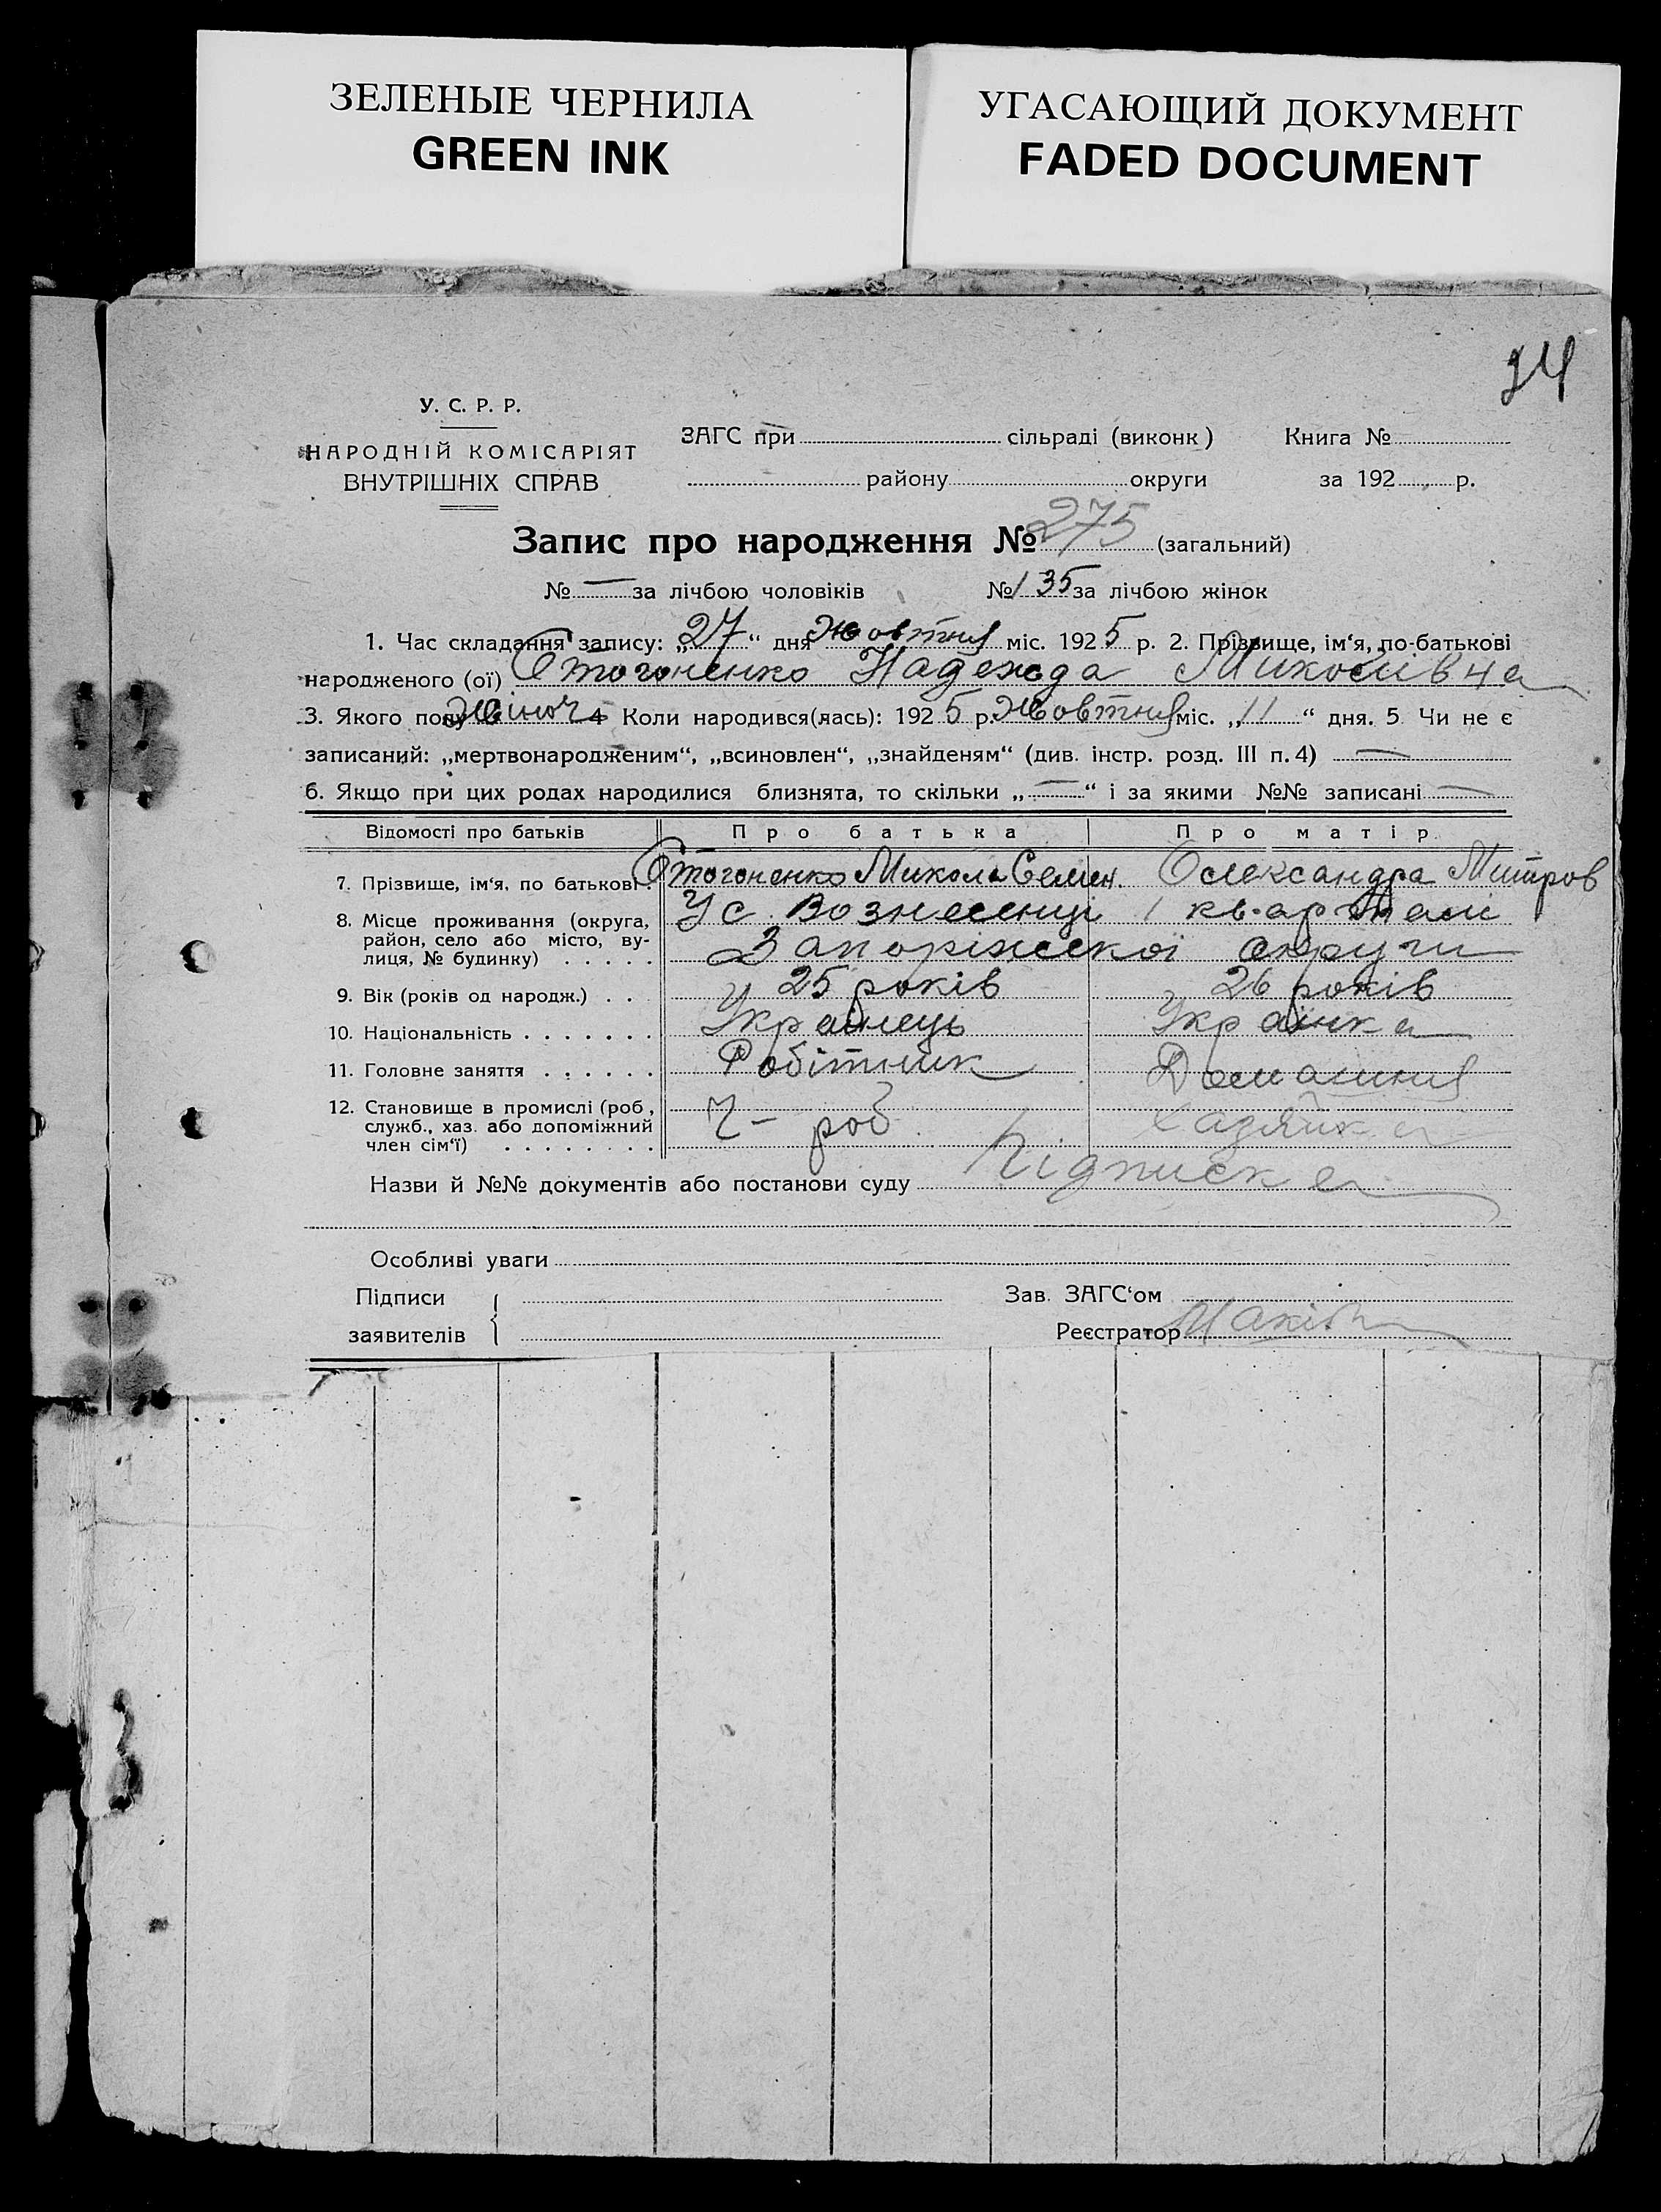 ЗЕЛЕНЫЕ ЧЕРНИЛА
GREEN INK
УГАСАЮЩИЙ ДОКУМЕНТ
FADED DOCUMENT
У. С. Р. Р.
НАРОДНІЙ КОМІСАРІЯТ
ВНУТРІШНІХ СПРАВ
ЗАГС при сільраді (виконк) Книга №
району округи за 192 р.
Запис про народження № 275 (загальний)
№ — за лічбою чоловіків № 135 за лічбою жінок
1. Час складання запису: „27“ дня Жовтня міс. 1925 р. 2. Прізвище, ім‘я, по-батькові
народженого (ої) Стогоненко Надежда Миколівна
3. Якого полу Жіноч 4 Коли народився(лась): 1925 р. Жовтня міс. „11“ дня. 5 Чи не є
записаний: „мертвонародженим“, „всиновлен“, „знайденям“ (див. інстр. розд. III п. 4) —
6. Якщо при цих родах народилися близнята, то скільки „—“ і за якими №№ записані —
Відомості про батьків Про батька Про матір
7. Прізвище, ім‘я, по батькові Стогоненко Микола Семен. Олександра Митров
8. Місце проживання (округа, район, село або місто, вулиця, № будинку) У с. Вознесенці 1 квартал
Запоріжскої округи
9. Вік (років од народж.) 25 років 26 років
10. Національність Українець Українка
11. Головне заняття Робітник Домашня
12. Становище в промислі (роб, служб., хаз. або допоміжний член сім‘ї) Ч- роб. Хазяйка
Назви й №№ документів або постанови суду Підписка
Особливі уваги
Підписи Зав. ЗАГС‘ом
заявителів Реєстратор